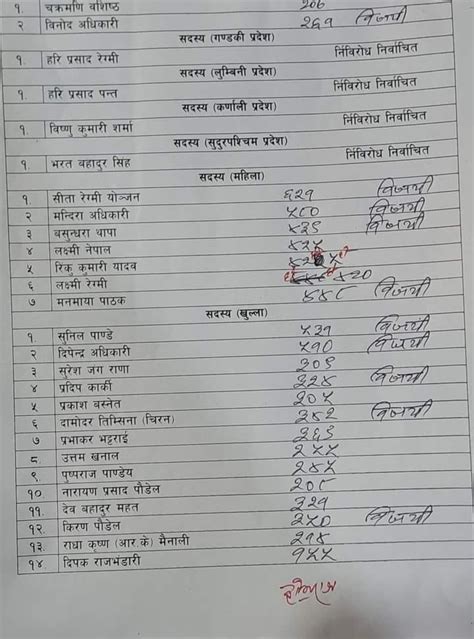 १. चक्रमणि वशिष्ठ २०६
२ विनोद अधिकारी २६७ विजयी
सदस्य (गण्डकी प्रदेश)
१. हरि प्रसाद रेग्मी निर्विरोध निर्वाचित
सदस्य (लुम्बिनी प्रदेश)
१. हरि प्रसाद पन्त निर्विरोध निर्वाचित
सदस्य (कर्णाली प्रदेश)
१. विष्णु कुमारी शर्मा निर्विरोध निर्वाचित
सदस्य (सुदुरपश्चिम प्रदेश)
१. भरत बहादुर सिंह निर्विरोध निर्वाचित
सदस्य (महिला)
१. सीता रेग्मी योञ्जन ६२१ विजयी
२ मन्दिरा अधिकारी ५८० विजयी
३ बसुन्धरा थापा विजयी
४ लक्ष्मी नेपाल ४२५
५ रिकु कुमारी यादव
६ लक्ष्मी रेग्मी ४२०
७ मनमाया पाठक ४४८ विजयी
सदस्य (खुल्ला)
१. सुनिल पाण्डे ५२१ विजयी
२ दिपेन्द्र अधिकारी ५१० विजयी
३ सुरेश जंग राणा
४ प्रदिप कार्की ३२४ विजयी
५ प्रकाश बस्नेत २०५
६ दामोदर तिम्सिना (चिरन) ३८२ विजयी
७ प्रभाकर भट्टराई
८. उत्तम खनाल २५५
९. पुष्पराज पाण्डेय २४५
१०. नारायण प्रसाद पौडेल २०८
११. देव बहादुर महत ३२१
१२. किरण पौडेल ३५० विजयी
१३. राधा कृष्ण (आर.के) मैनाली २१४
१४. दिपक राजभंडारी १५५